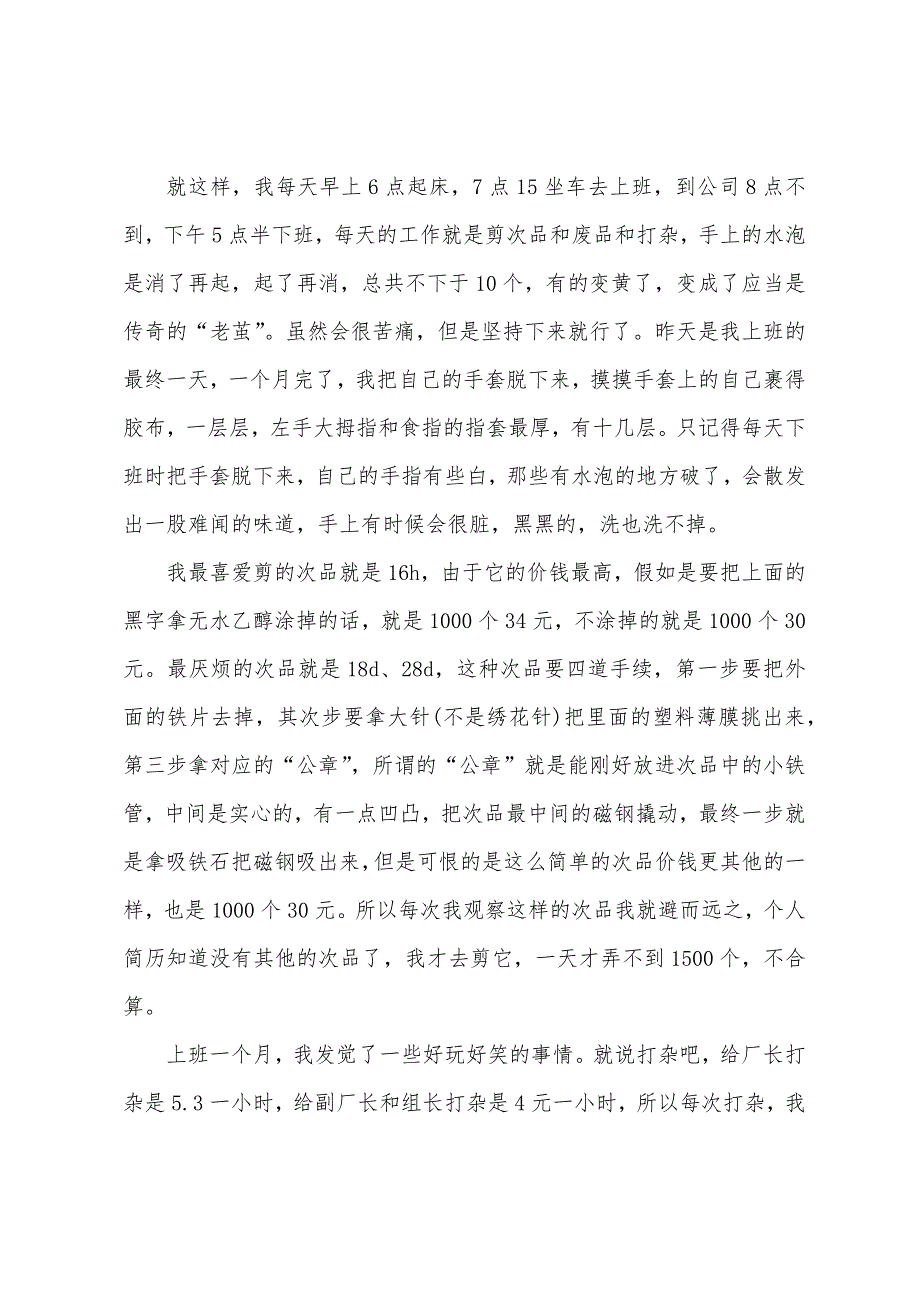 就这样，我每天早上6点起床，7点15坐车去上班，到公司8点不
到，下午5点半下班，每天的工作就是剪次品和废品和打杂，手上的水泡
是消了再起，起了再消，总共不下于10个，有的变黄了，变成了应当是
传奇的“老茧”。虽然会很苦痛，但是坚持下来就行了。昨天是我上班的
最终一天，一个月完了，我把自己的手套脱下来，摸摸手套上的自己裹得
胶布，一层层，左手大拇指和食指的指套最厚，有十几层。只记得每天下
班时把手套脱下来，自己的手指有些白，那些有水泡的地方破了，会散发
出一股难闻的味道，手上有时候会很脏，黑黑的，洗也洗不掉。
我最喜爱剪的次品就是16h，由于它的价钱最高，假如是要把上面的
黑字拿无水乙醇涂掉的话，就是1000个34元，不涂掉的就是1000个30
元。最厌烦的次品就是18d、28d，这种次品要四道手续，第一步要把外
面的铁片去掉，其次步要拿大针(不是绣花针)把里面的塑料薄膜挑出来，
第三步拿对应的“公章”，所谓的“公章”就是能刚好放进次品中的小铁
管，中间是实心的，有一点凹凸，把次品最中间的磁钢撬动，最终一步就
是拿吸铁石把磁钢吸出来，但是可恨的是这么简单的次品价钱更其他的一
样，也是1000个30元。所以每次我观察这样的次品我就避而远之，个人
简历知道没有其他的次品了，我才去剪它，一天才弄不到1500个，不合
算。
上班一个月，我发觉了一些好玩好笑的事情。就说打杂吧，给厂长打
杂是5.3一小时，给副厂长和组长打杂是4元一小时，所以每次打杂，我